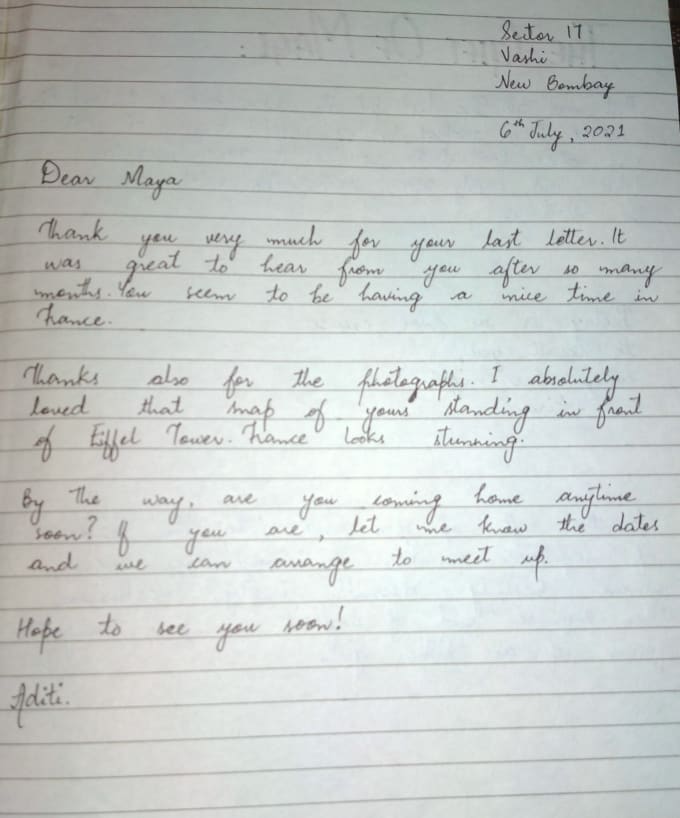 Sector 17
Vashi
New Bombay
6th July, 2021
Dear Maya
Thank you very much for your last letter. It
was great to hear from you after so many
months. You seem to be having a nice time in
France.
Thanks also for the photographs. I absolutely
loved that snap of yours standing in front
of Eiffel Tower. France looks stunning.
By the way, are you coming home anytime
soon? If you are, let me know the dates
and we can arrange to meet up.
Hope to see you soon!
Aditi.